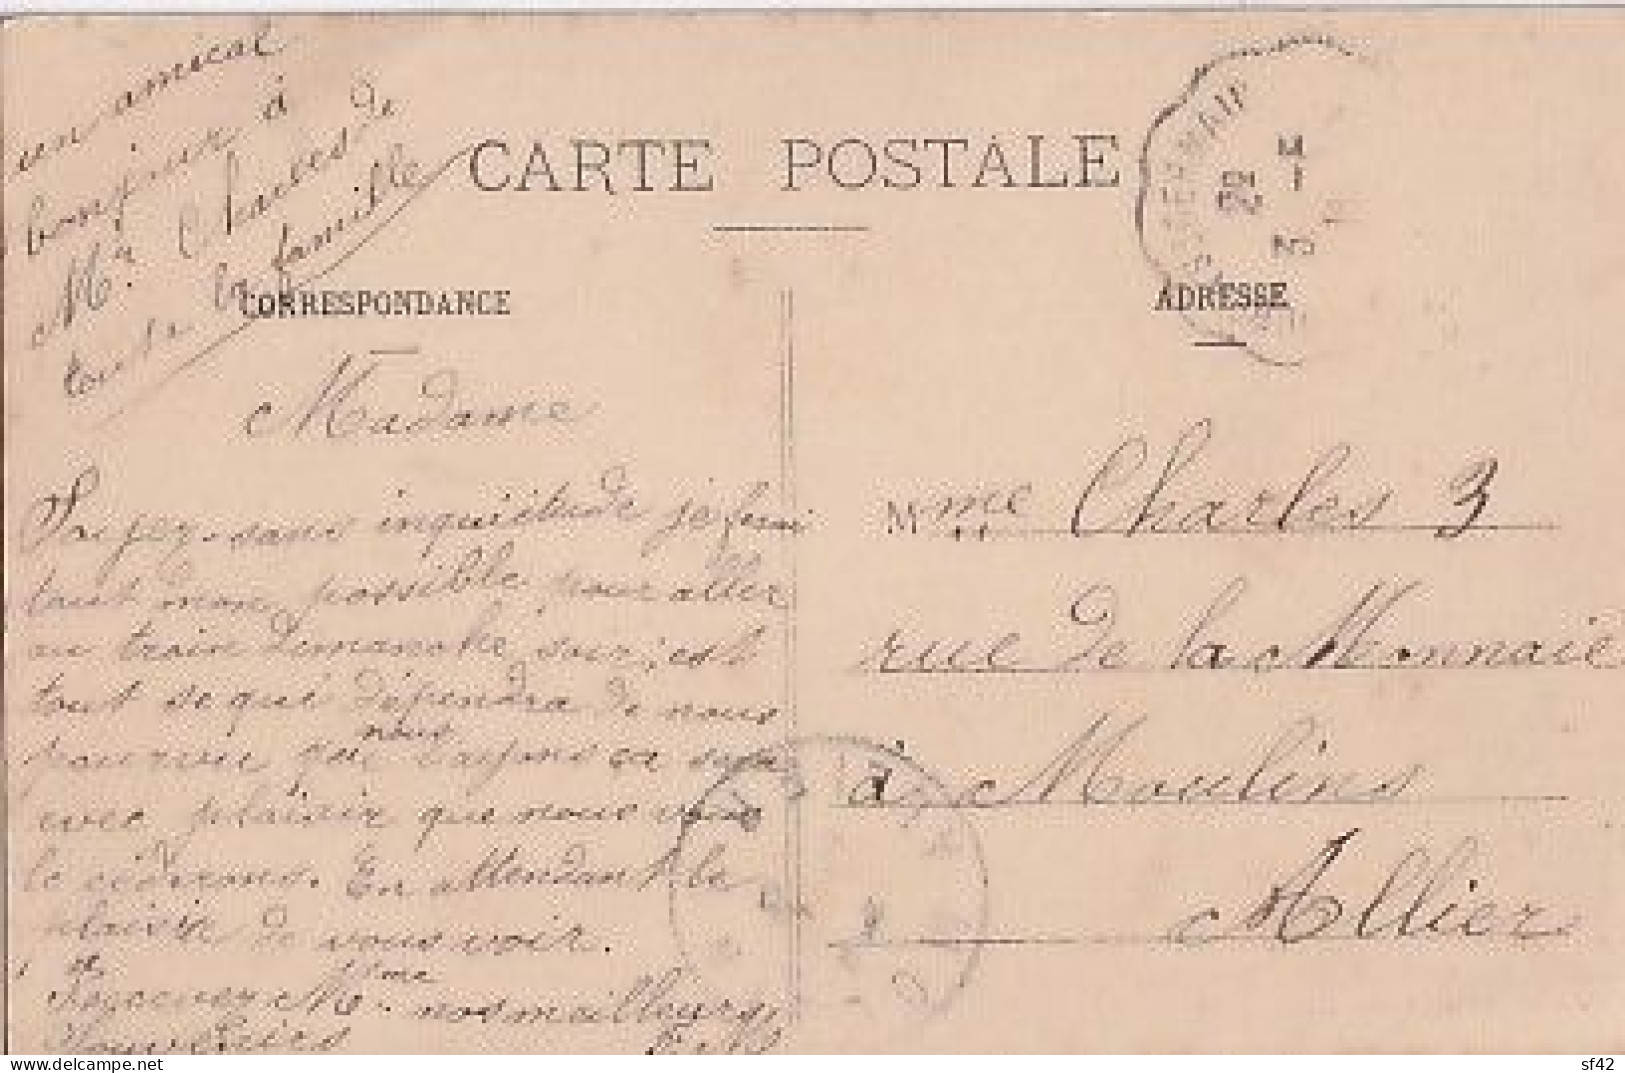 un amical
bonjour à
Mr Charles de
toute la famille
CARTE POSTALE
CORRESPONDANCE
ADRESSE
Madame
Soyez sans inquiétude je ferai
tout mon possible pour aller
au train dimanche soir, est
tout se qui dépendra de nous
pourvu que nous layons ça sera
avec plaisir que nous vous
le cèderons. En attendant le
plaisir de vous voir.
Recever Mme nos meilleurs
Mme Charles 3
rue de la Monnaie
à Moulins
Allier
sf42